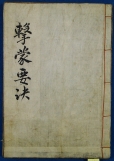 擊蒙要決